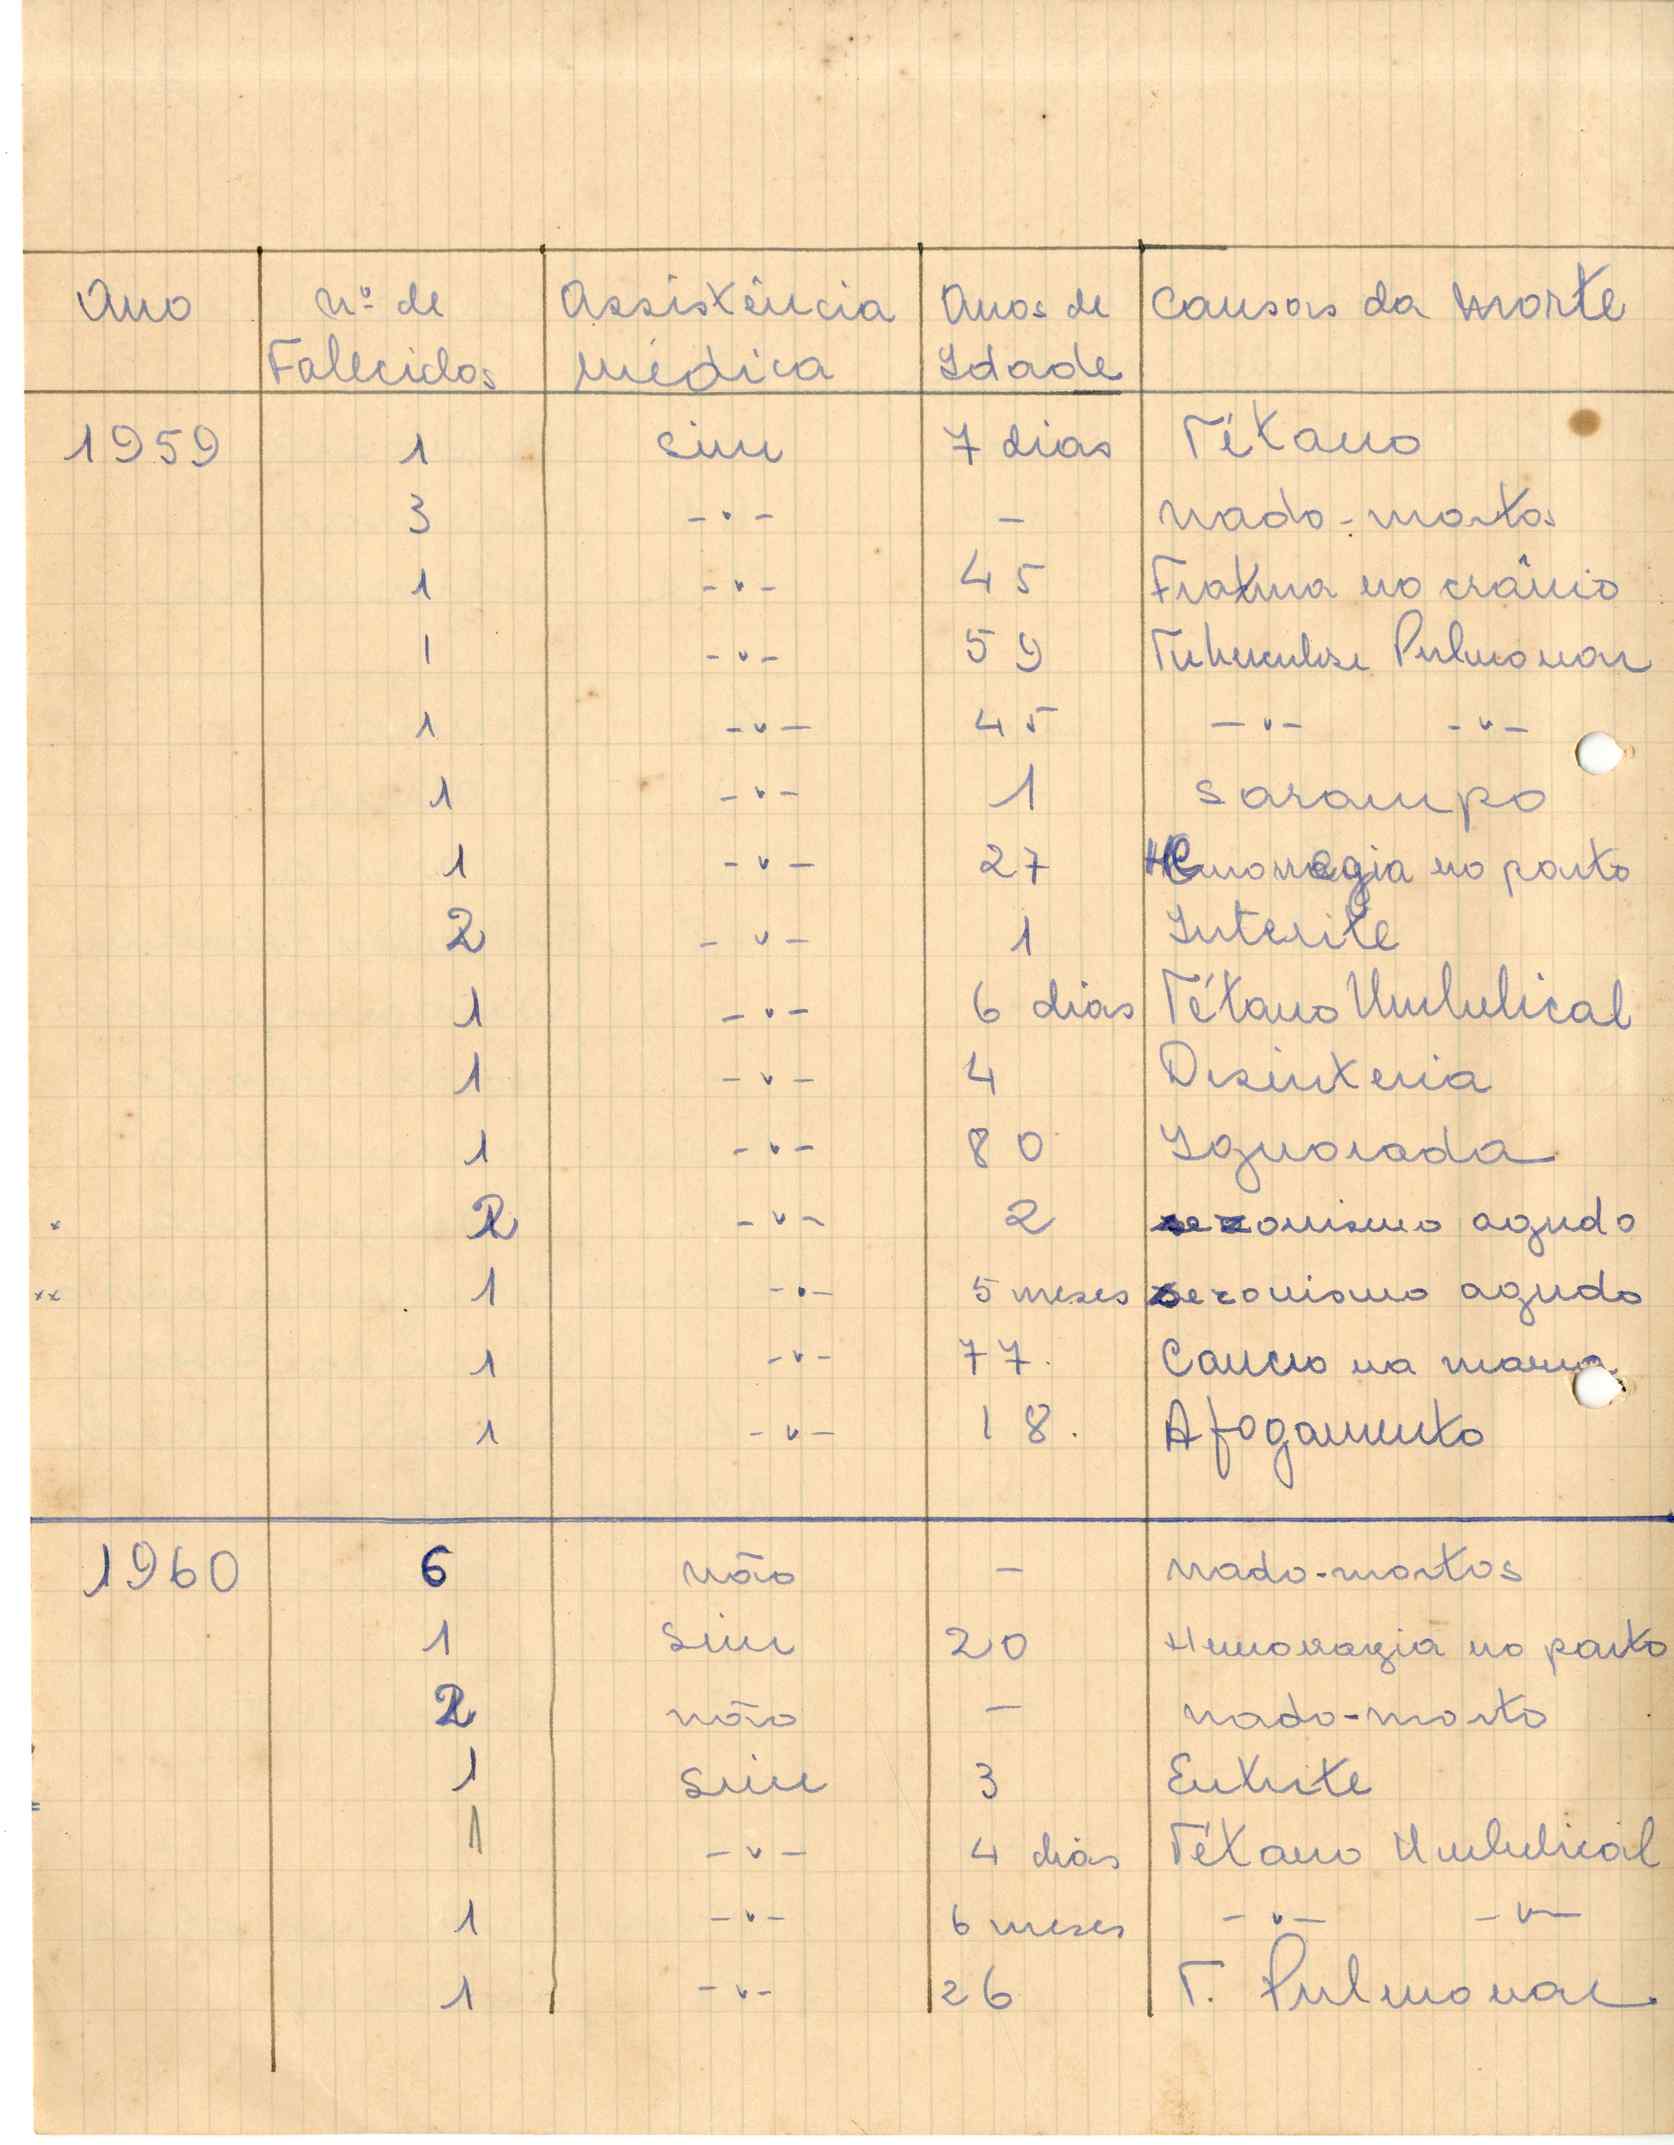 Ano nº de Assistência Anos de Causas da morte
Falecidos Médica Idade
1959 1 sim 7 dias Tétano
3 -"- - nado-mortos
1 -"- 45 Fratura no crânio
1 -"- 59 Tuberculose Pulmonar
1 -"- 45 -"- -"-
1 -"- 1 sarampo
1 -"- 27 Hemorregia no parto
2 -"- 1 Interite
1 -"- 6 dias Tétano Umbulical
1 -"- 4 Desinteria
1 -"- 80 Ignorada
x 2 -"- 2 sezonismo agudo
xx 1 -"- 5 meses sezonismo agudo
1 -"- 77. Cancro na
1 -"- 18. Afogamento
1960 6 não - nado-mortos
1 sim 20 Hemorragia no parto
2 não - nado-morto
1 sim 3 Entrite
1 -"- 4 dias Tétano Umbulical
1 -"- 6 meses -"- -"-
1 -"- 26 T. Pulmonar